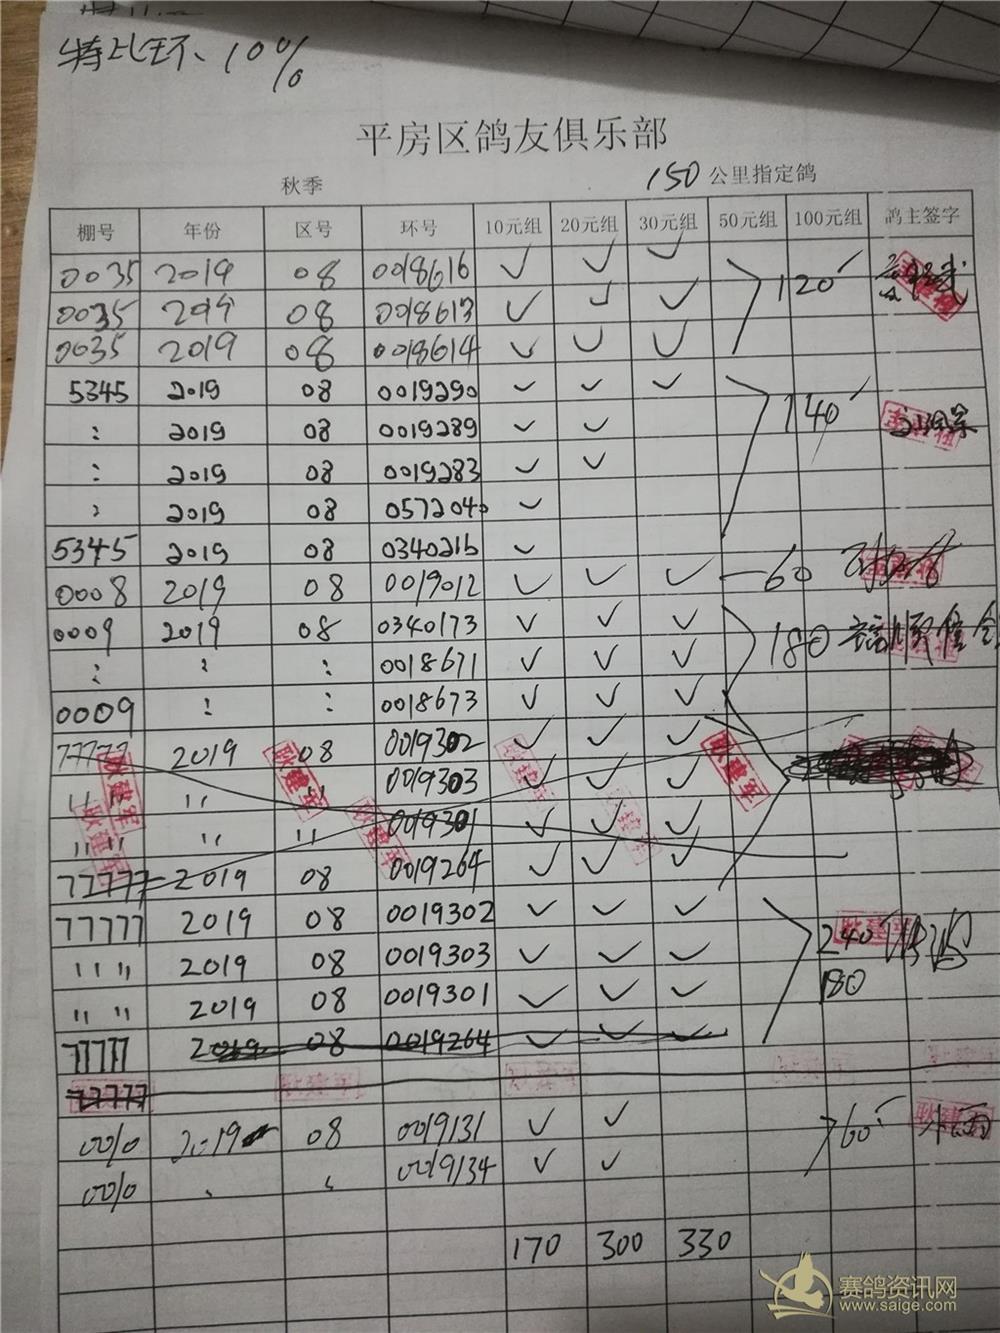 特比环、10%
平房区鸽友俱乐部
秋季 150公里指定鸽
棚号 年份 区号 环号 10元组 20元组 30元组 50元组 100元组 鸽主签字
0035 2019 08 0018616 ✓ ✓ ✓
0035 2019 08 0018613 ✓ ✓ ✓ 120
0035 2019 08 0018614 ✓ ✓ ✓
5345 2019 08 0019290 ✓ ✓ ✓
: 2019 08 0019289 ✓ ✓ 140
: 2019 08 0019283 ✓ ✓
: 2019 08 0572040 ✓
5345 2019 08 0340216 ✓
0008 2019 08 0019012 ✓ ✓ ✓ 60
0009 2019 08 0340173 ✓ ✓ ✓
: : : 0018671 ✓ ✓ ✓ 180
0009 : : 0018673 ✓ ✓ ✓
77777 2019 08 0019302 ✓ ✓ ✓
" " " " 0019303 ✓ ✓ ✓
" " " " 0019301 ✓ ✓ ✓
77777 2019 08 0019264 ✓ ✓ ✓
77777 2019 08 0019302 ✓ ✓ ✓
" " 2019 08 0019303 ✓ ✓ ✓ 240
" " 2019 08 0019301 ✓ ✓ ✓ 180
77777 2019 08 0019264 ✓ ✓ ✓
77777
0010 2019 08 0019131 ✓ ✓ 60
0010 、 、 0019134 ✓ ✓
170 300 330
耿建军
赛鸽资讯网
www.saige.com